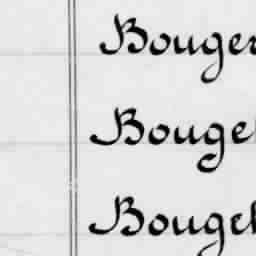 Bouger
Bougel
Bougel